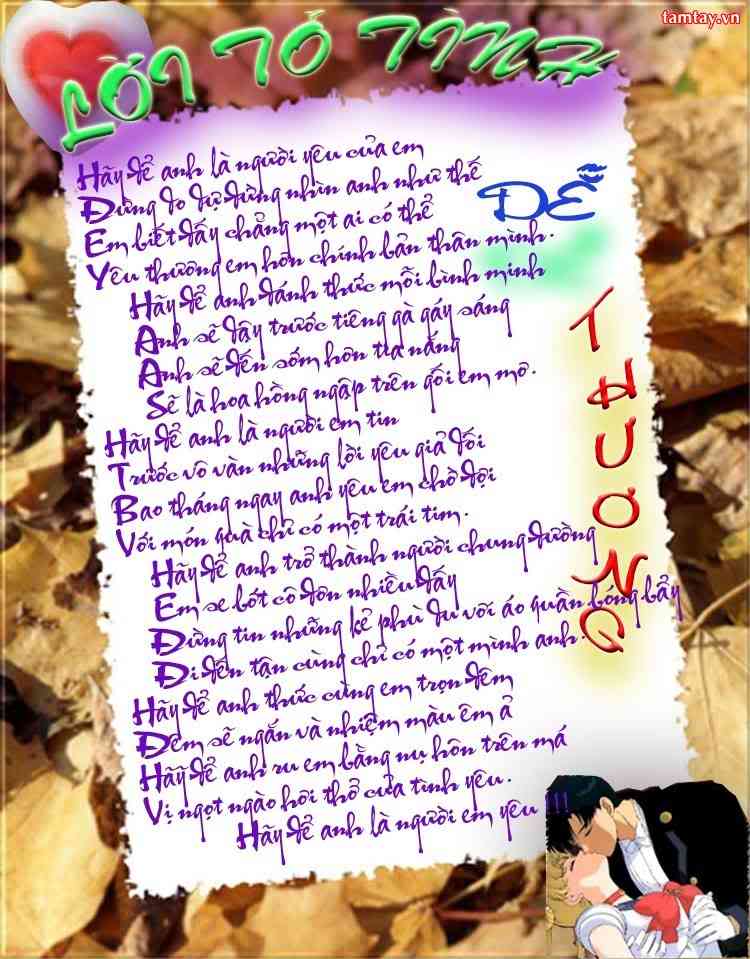 tamtay.vn
LỜI TỎ TÌNH
DỄ
THƯƠNG
Hãy để anh là người yêu của em
Đừng do dự đừng nhìn anh như thế
Em biết đấy chẳng một ai có thể
Yêu thương em hơn chính bản thân mình.
Hãy để anh đánh thức mỗi bình minh
Anh sẽ dậy trước tiếng gà gáy sáng
Anh sẽ đến sớm hơn tia nắng
Sẽ là hoa hồng ngập trên gối em mơ.
Hãy để anh là người em tin
Trước vô vàn những lời yêu giả dối
Bao tháng ngay anh yêu em chờ đợi
Với món quà chỉ có một trái tim.
Hãy để anh trở thành người chung đường
Em se bớt cô đơn nhiều đấy
Đừng tin những kẻ phù du với áo quần bóng bẩy
Đi đến tận cùng chỉ có một mình anh.
Hãy để anh thức cùng em trọn đêm
Đêm sẽ ngắn và nhiệm màu êm ả
Hãỹ để anh ru em bằng nụ hôn trên má
Vị ngọt ngào hơi thở của tình yêu.
Hãy để anh là người em yêu !!!